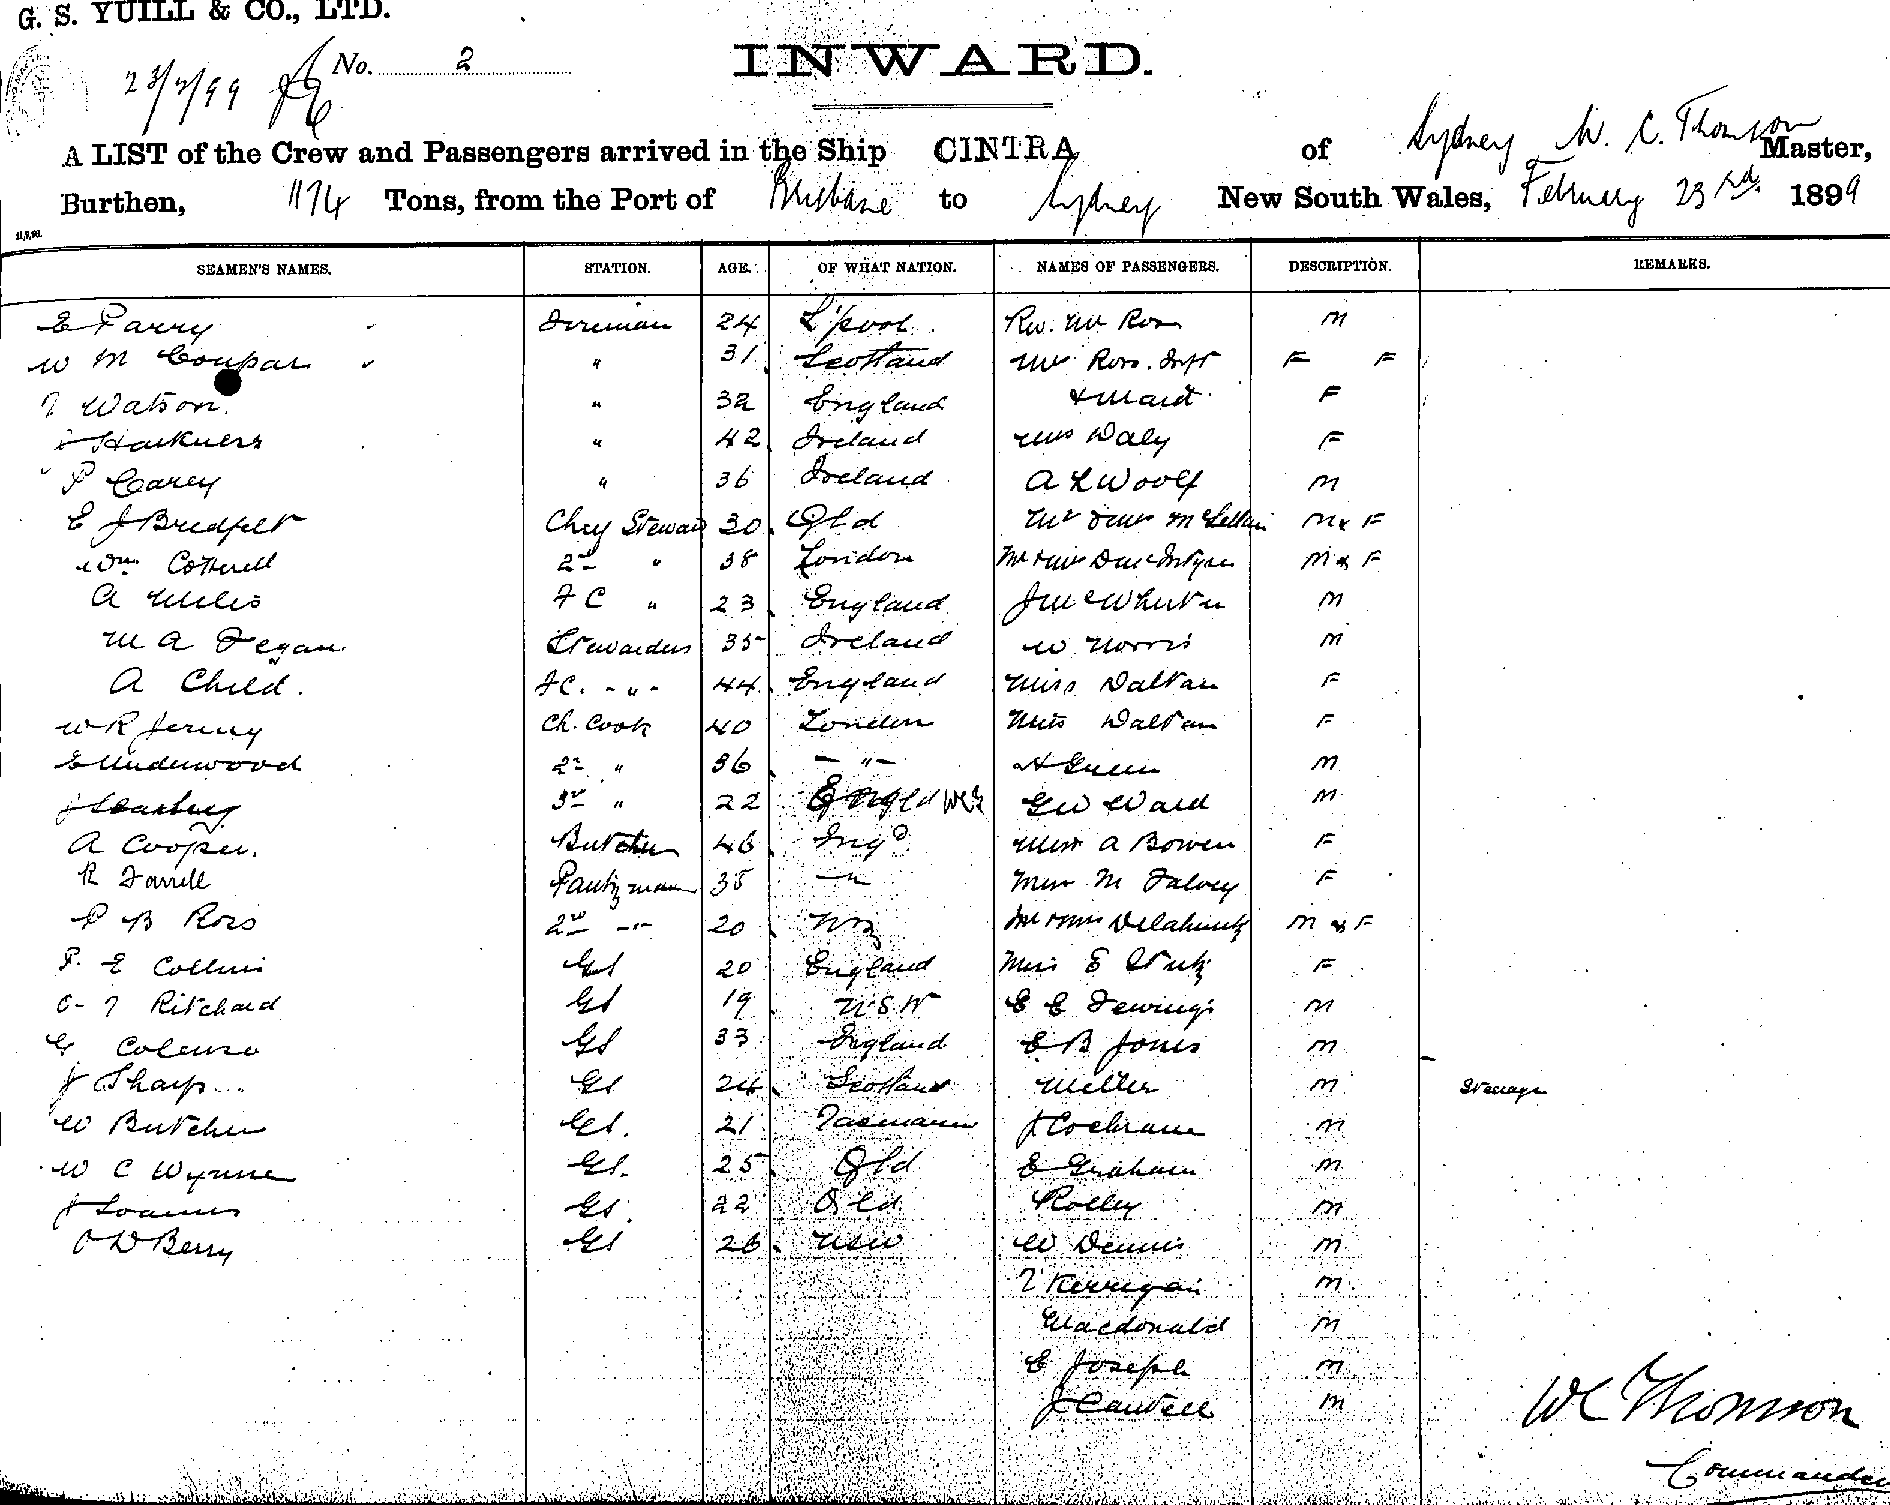 G. S. YUILL & CO., LTD.
No. 2
23/2/99
INWARD.
A LIST of the Crew and Passengers arrived in the Ship CINTRA of Sydney W. C. Thomson Master,
Burthen, 1174 Tons, from the Port of Brisbane to Sydney New South Wales, February 23rd 1899
SEAMEN'S NAMES. STATION. AGE. OF WHAT NATION. NAMES OF PASSENGERS. DESCRIPTION. REMARKS.
E Parry Fireman 24 L'pool Rev. Mr Ross M
W M Coupar " 31 Scotland Mrs Ross. Inft F F
T Watson " 32 England & Maid F
J Harkness " 42 Ireland Mrs Daly F
P Carey " 36 Ireland A L Woolf M
E J Bredfelt Steward 30 Qld Mr & Mrs McLellan M & F
Wm Cotterell 2nd " 38 London Mr & Mrs M & F
A FC " 23 England M
M A Fegan Stewardess 35 Ireland W Norris M
A Child. FC. " 44 England Miss Daltan F
W R Ch. Cook 40 London Miss Daltan F
E Underwood 2nd " 36 " H Green M
3rd " 22 England G W Ward M
A Cooper. Butcher 46 Engd Miss A Bowen F
R Farrell Pantryman 35 " Miss M Falvey F
P B Ross 2nd " 20 NZ Mr & Mrs Delahunty M & F
P. E Collins GS 20 England Miss E F
C T Ritchard GS 19 N.S.W E E Fewings M
G Colenso GS 33 England E B Jones M
J Sharp GS 24 Scotland Miller M Steerage
W Butcher GS. 21 Tasmania J Cochrane M
W C Wynne GS. 25 Qld E Graham M
J GS. 22 Qld Rolley M
O D Berry GS 26 NSW W Dennis M
T Kerrigan M
Macdonald M
E Joseph M
J Cantell M
W C Thomson
Commander